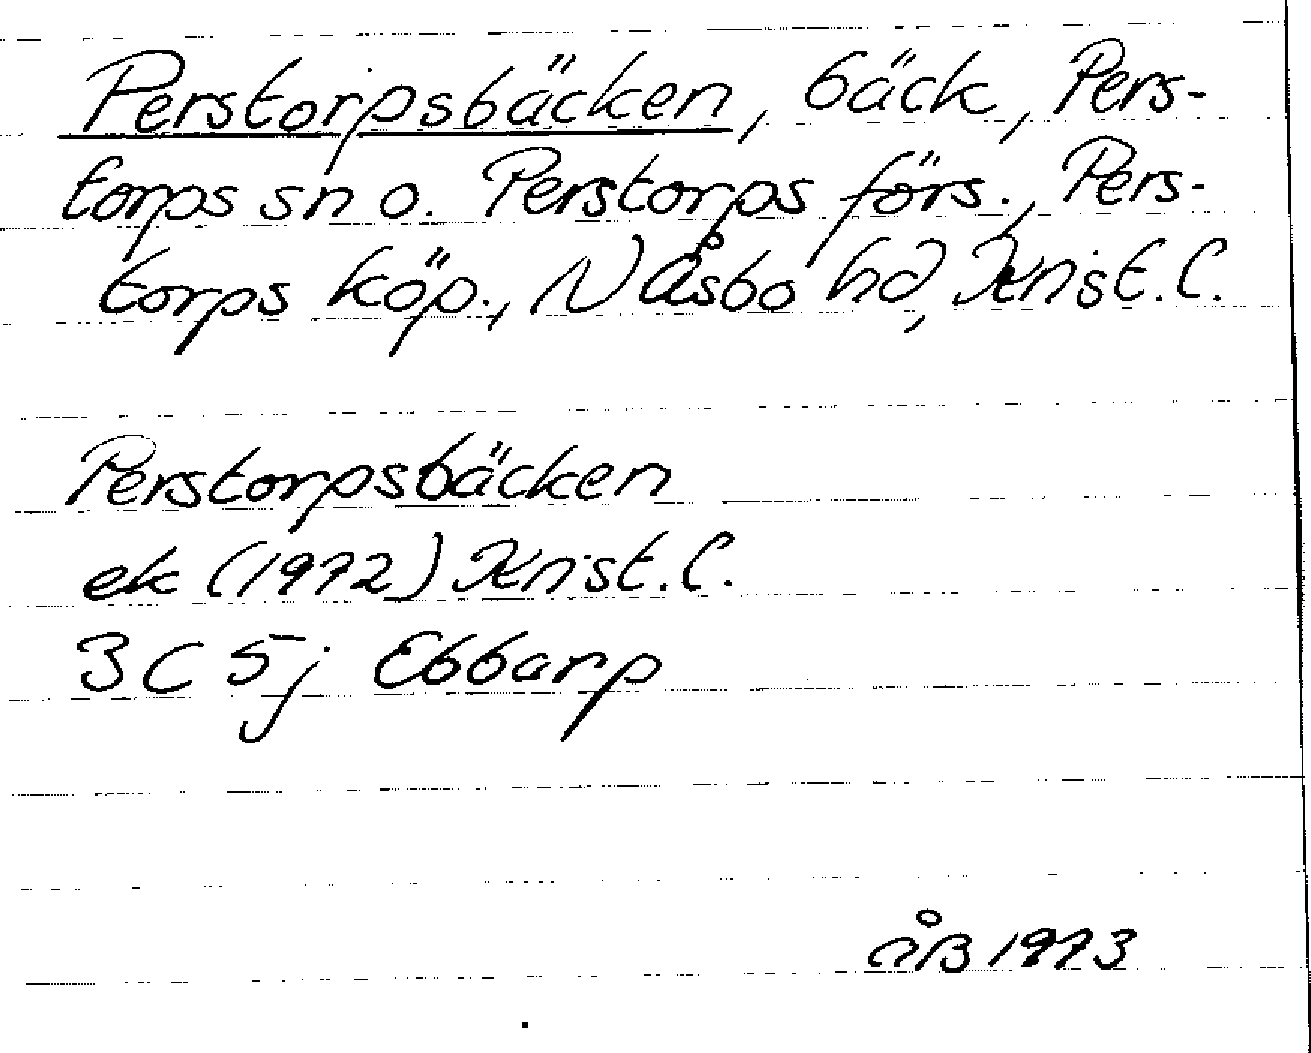 Perstorpsbäcken, bäck, Pers-
torps sn o. Perstorps förs., Pers-
torps köp., N Åsbo hd, Krist. l.
Perstorpsbäcken
ek (1972) Krist. l.
3C 5j Ebbarp
ÅB 1973